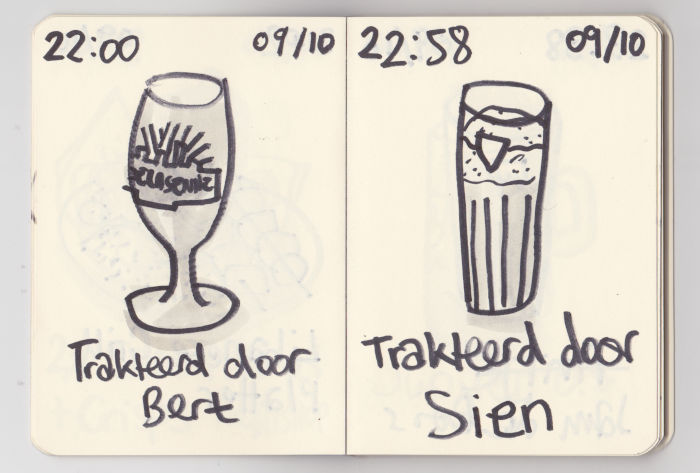 22:00
09/10
Trakteerd door
Bert
22:58
09/10
Trakteerd door
Sien